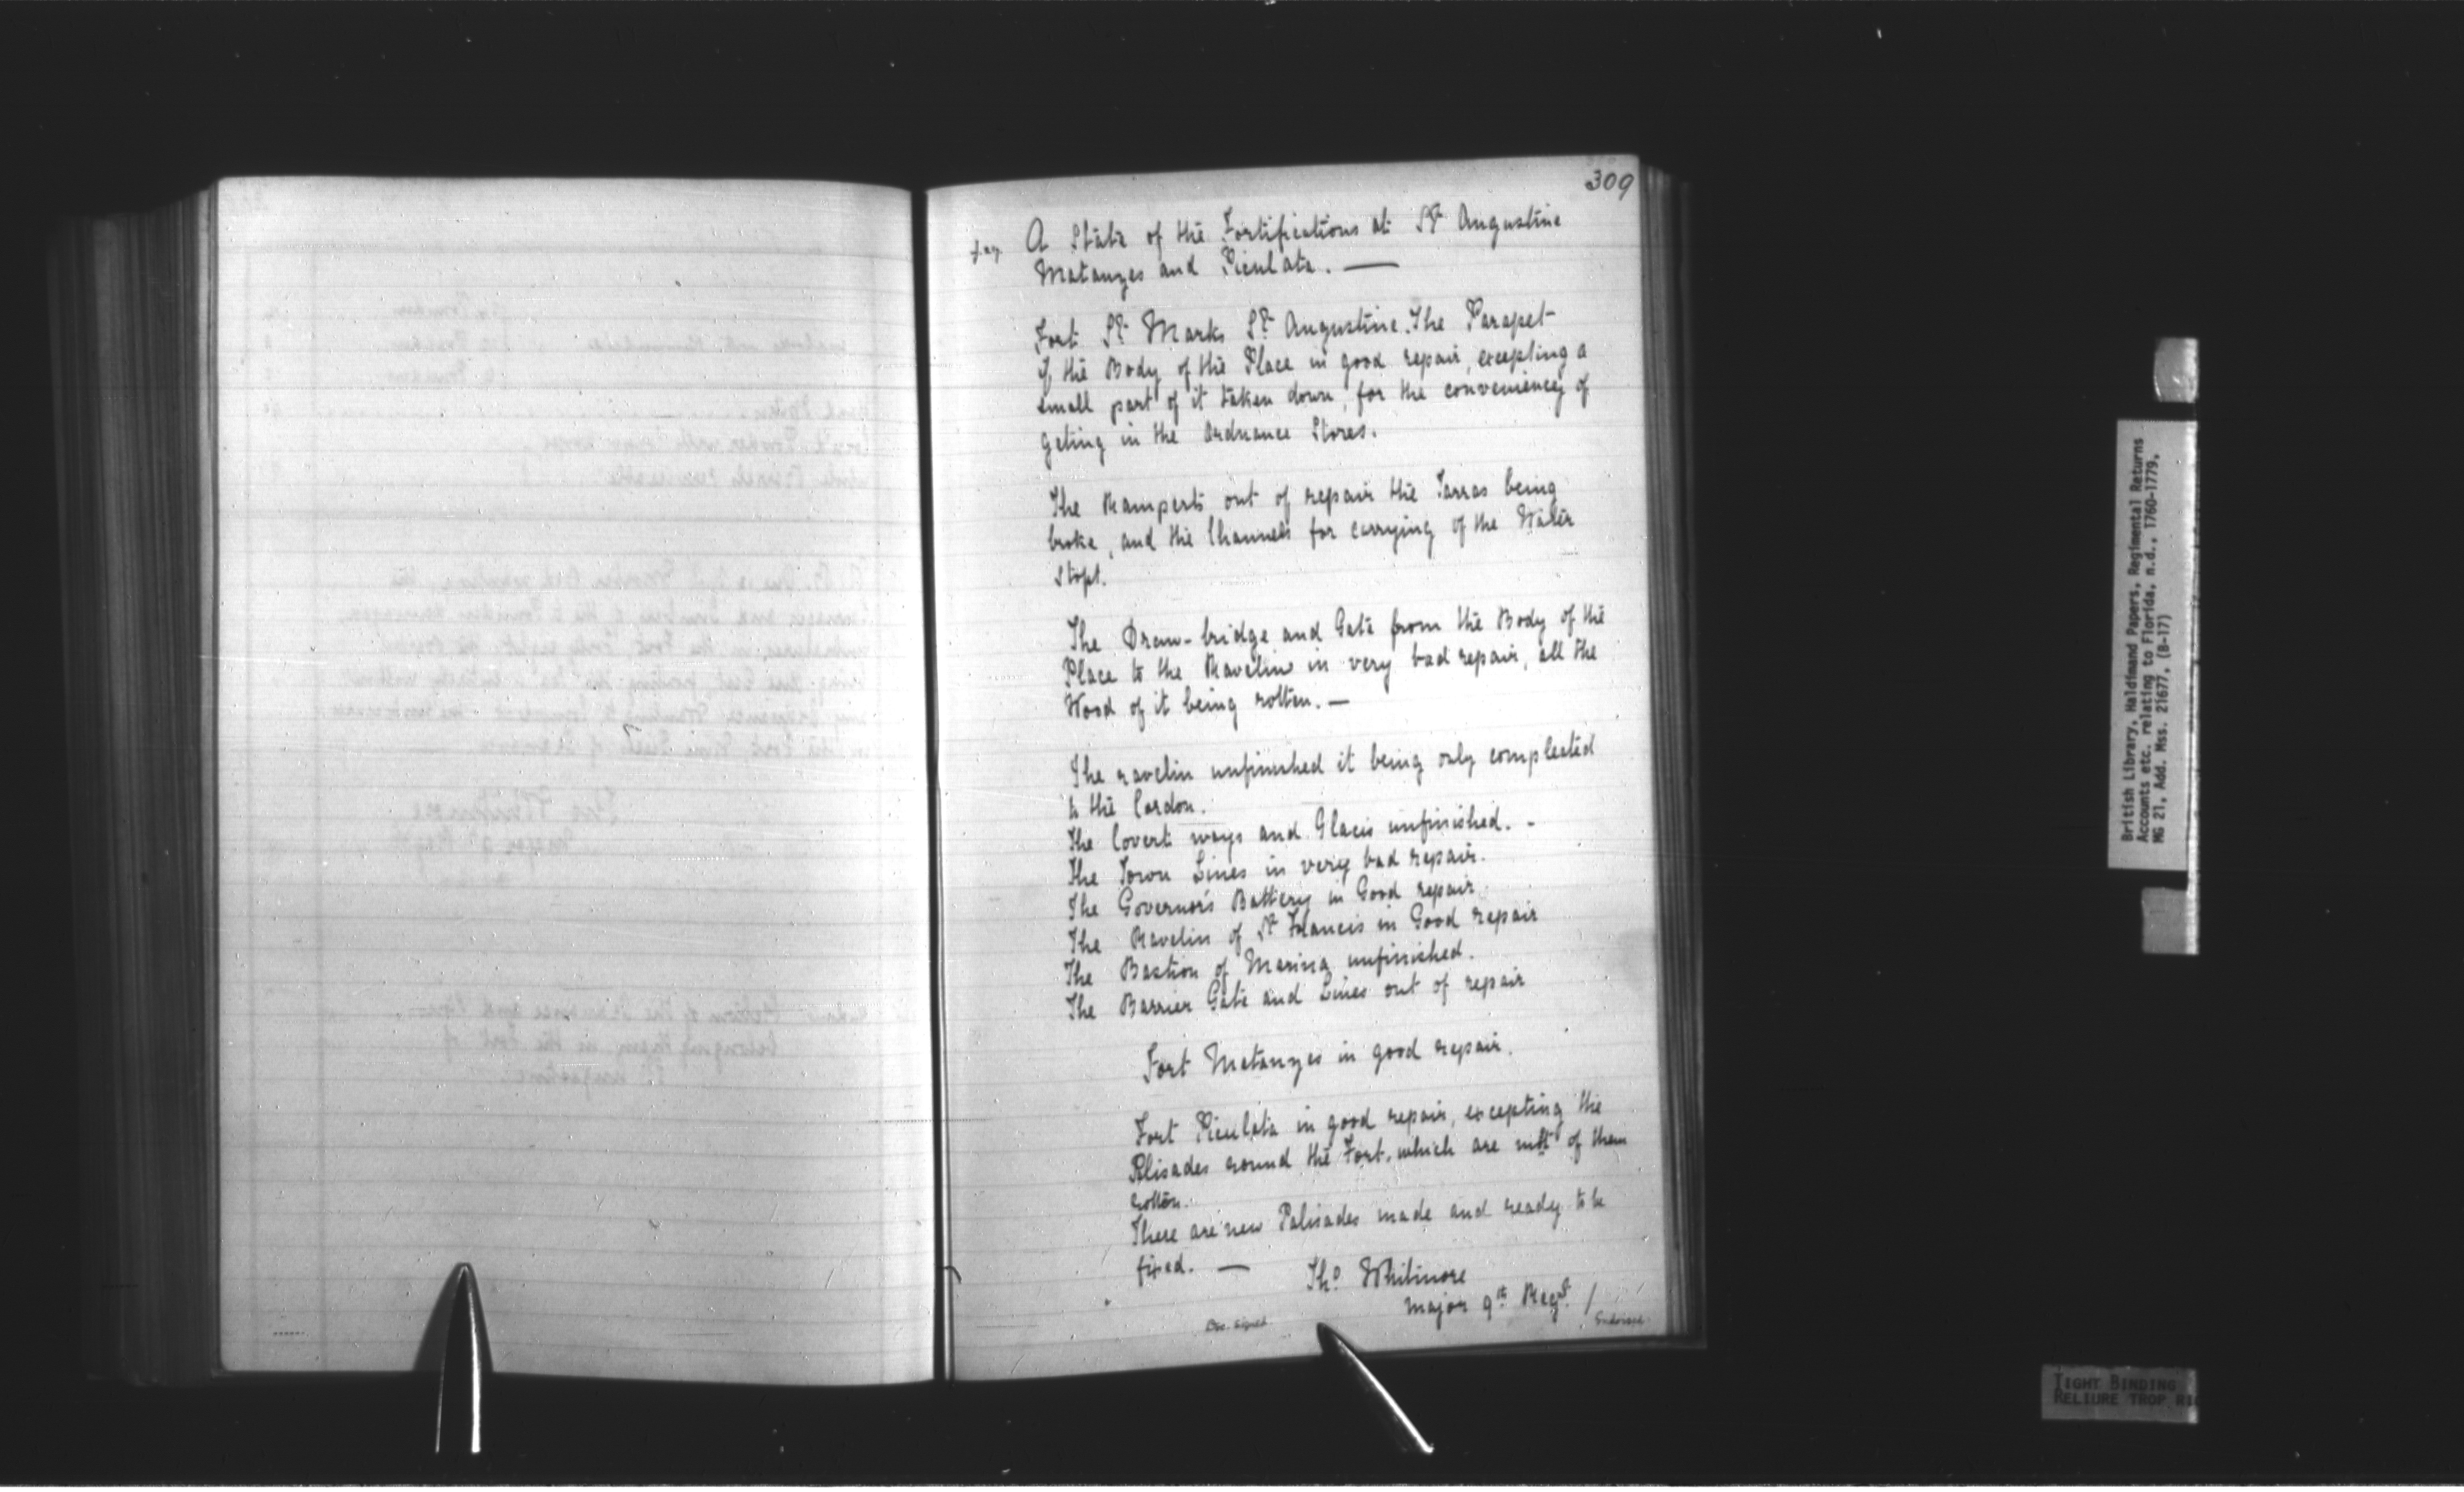 309
A State of the Fortifications at St Augustine
Matanzes and Piculata. —
Fort St Marks St Augustine. The Parapet
of the Body of the Place in good repair, excepting a
small part of it taken down, for the conveniency of
geting in the Ordnance Stores.
The Ramperts out of repair the Tarras being
broke, and the Channels for carrying of the Water
Stopt.
The Draw-bridge and Gate from the Body of the
Place to the Ravelin in very bad repair, all the
Wood of it being rotten. —
The ravelin unfinished it being only compleated
to the Cordon.
The Covert ways and Glacis unfinished. -
The Town Lines in very bad repair.
The Governor's Battery in Good repair
The Ravelin of St Francis in Good repair
The Bastion of Marina unfinished.
The Barrier Gate and Lines out of repair
Fort Matanzes in good repair.
Fort Piculata in good repair, excepting the
Palisades round the Fort, which are most of them
rotten.
There are new Palisades made and ready to be
fixed. —
Tho. Whitmore
Major 9th Regt. /
Doc. signed
Endorsed
British Library, Haldimand Papers, Regimental Returns
Accounts etc. relating to Florida, n.d., 1760-1779,
MG 21, Add. Mss. 21677, (B-17)
TIGHT BINDING
RELIURE TROP